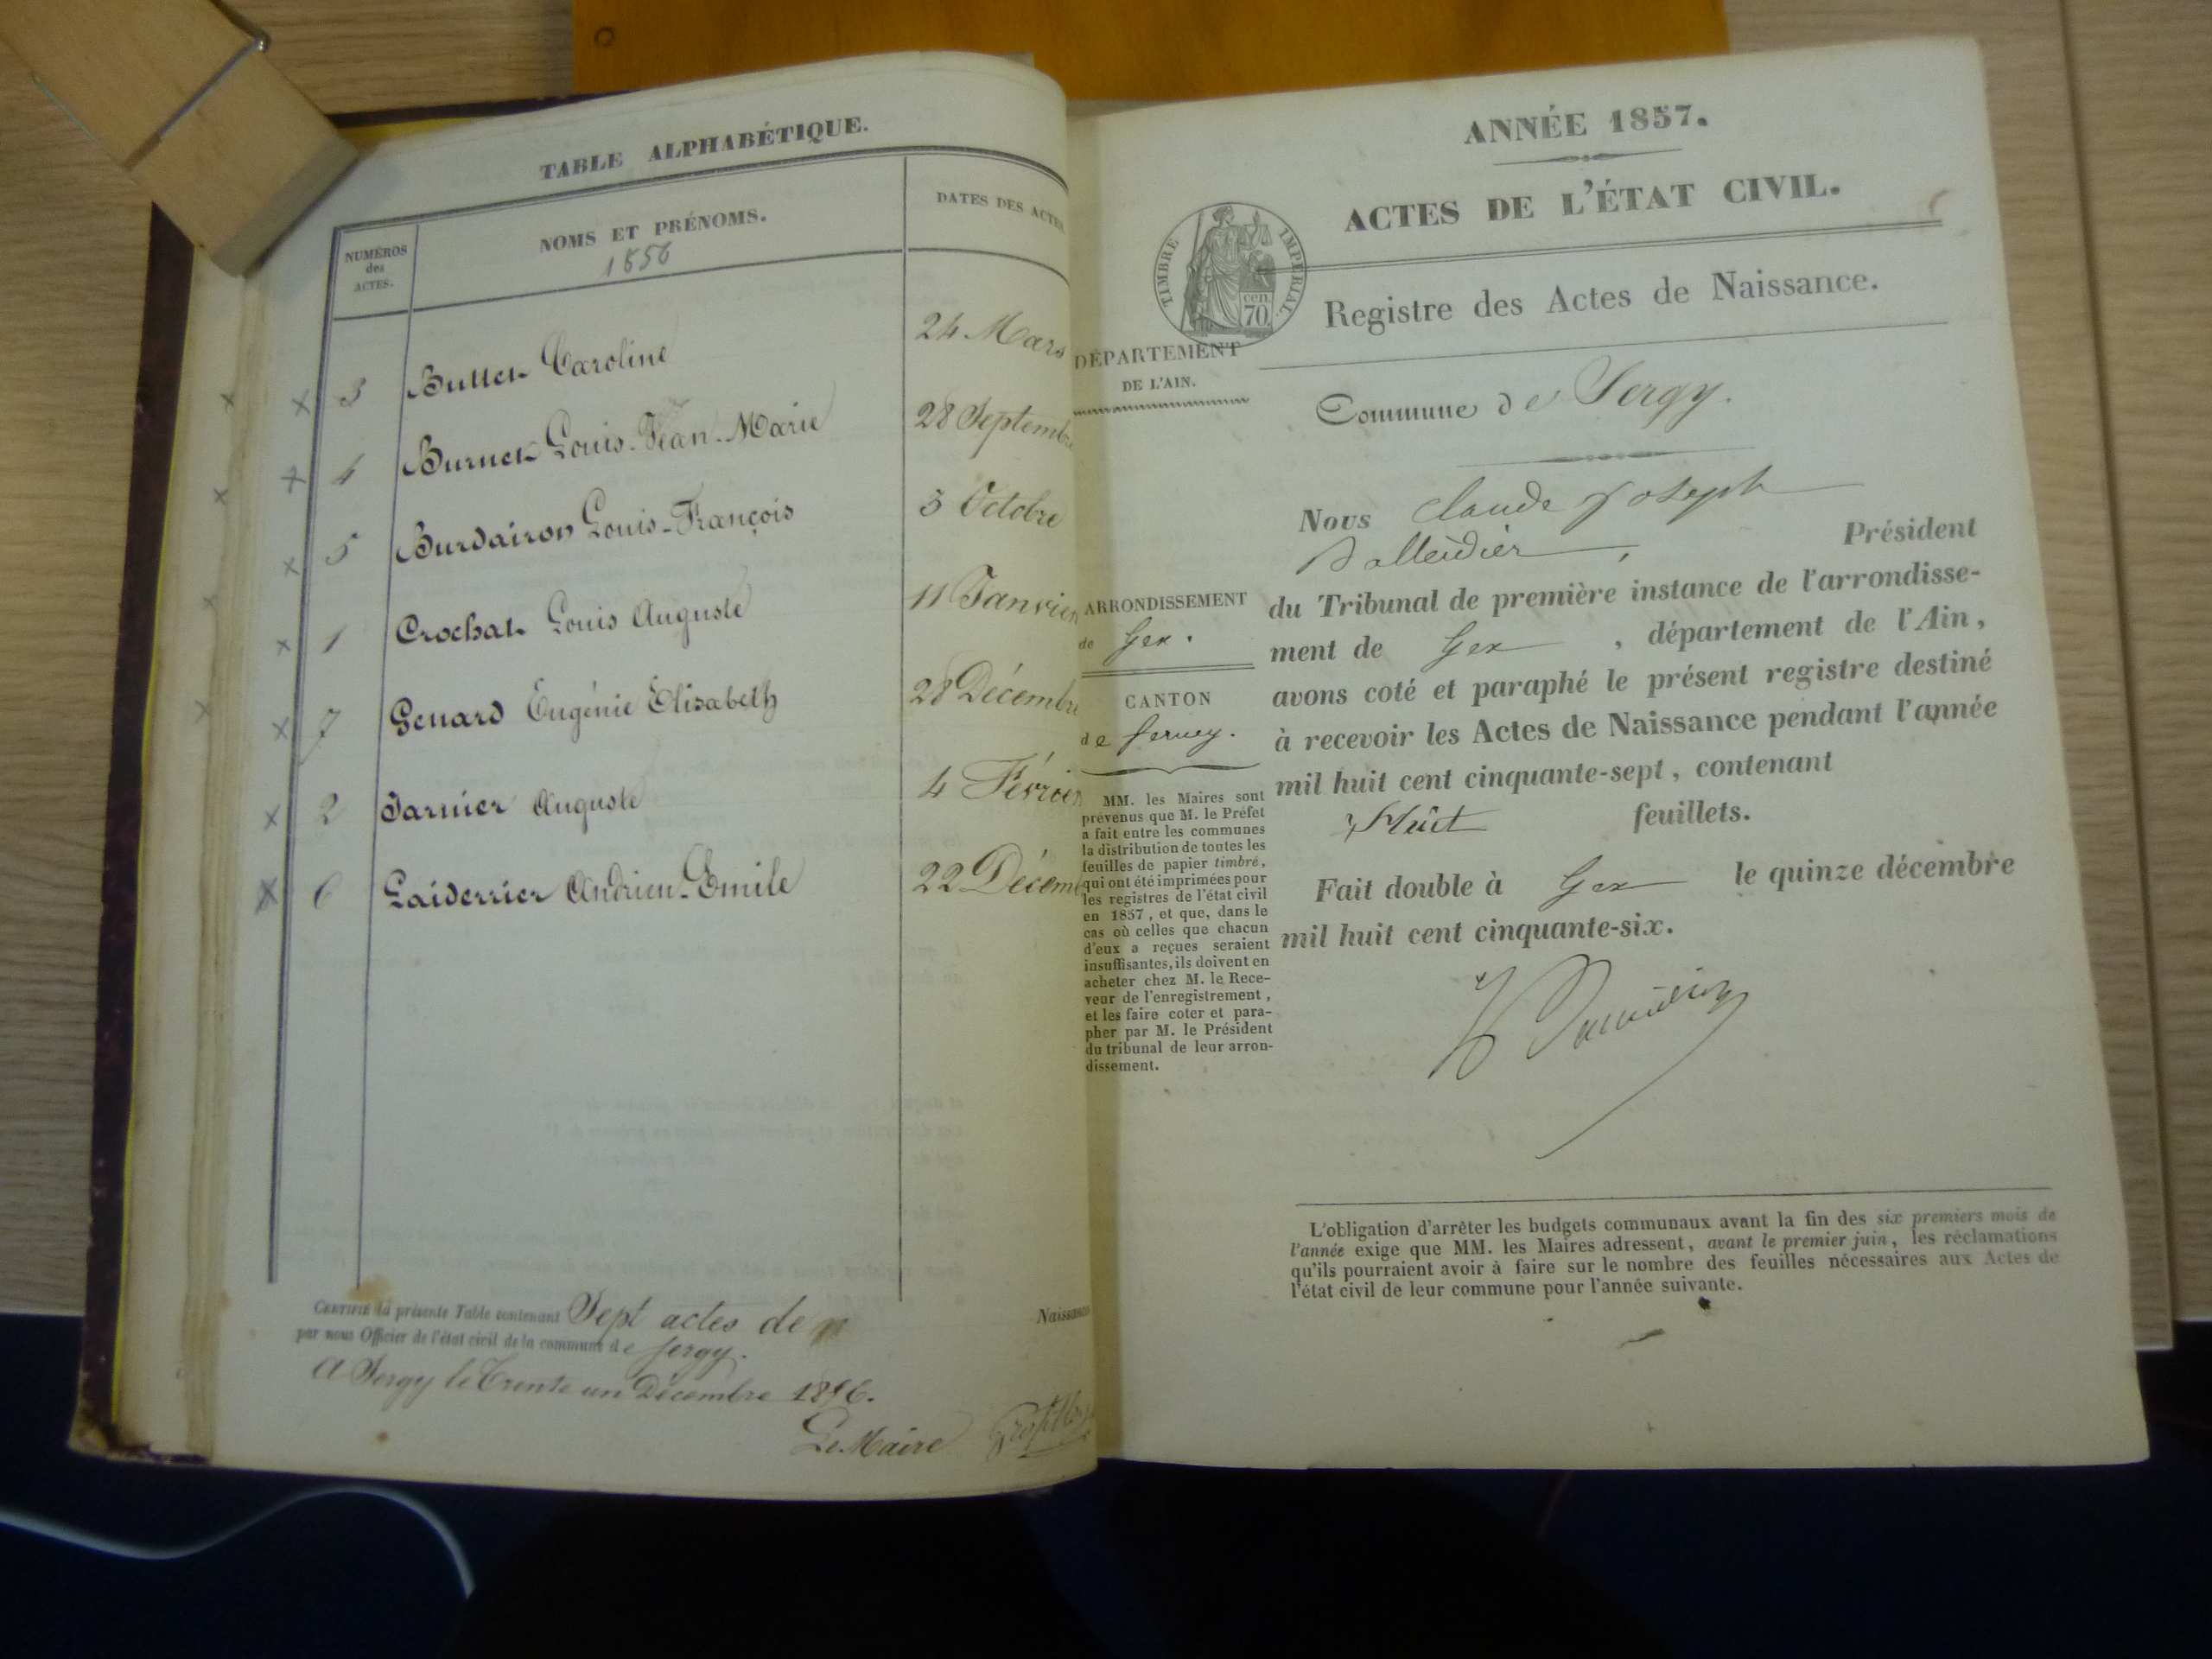 TABLE ALPHABÉTIQUE.
NUMÉROS des ACTES.
NOMS ET PRÉNOMS.
1856
DATES DES ACTES
3 Buttet Caroline 24 Mars
4 Burnet Louis-Jean-Marie 28 Septembre
5 Burdairon Louis-François 5 Octobre
1 Crochat Louis Auguste 11 Janvier
7 Genard Eugénie Elisabeth 28 Décembre
2 Jarnier Auguste 4 Février
6 Laiderrier Andrien-Emile 22 Décem
CERTIFIÉ la présente Table contenant Sept actes de Naissances
par nous Officier de l'état civil de la commune de Sergy.
A Sergy le Trente un Décembre 1856.
Le Maire
ANNÉE 1857.
ACTES DE L'ÉTAT CIVIL.
TIMBRE IMPERIAL
cen. 70
Registre des Actes de Naissance.
DÉPARTEMENT
DE L'AIN.
Commune de Sergy.
ARRONDISSEMENT
de Gex.
CANTON
de Ferney.
MM. les Maires sont
prévenus que M. le Préfet
a fait entre les communes
la distribution de toutes les
feuilles de papier timbré,
qui ont été imprimées pour
les registres de l'état civil
en 1857, et que, dans le
cas où celles que chacun
d'eux a reçues seraient
insuffisantes, ils doivent en
acheter chez M. le Rece-
veur de l'enregistrement,
et les faire coter et para-
pher par M. le Président
du tribunal de leur arron-
dissement.
Nous Claude Joseph
Président
du Tribunal de première instance de l'arrondisse-
ment de Gex, département de l'Ain,
avons coté et paraphé le présent registre destiné
à recevoir les Actes de Naissance pendant l'année
mil huit cent cinquante-sept, contenant
Huit feuillets.
Fait double à Gex le quinze décembre
mil huit cent cinquante-six.
L'obligation d'arrêter les budgets communaux avant la fin des six premiers mois de
l'année exige que MM. les Maires adressent, avant le premier juin, les réclamations
qu'ils pourraient avoir à faire sur le nombre des feuilles nécessaires aux Actes de
l'état civil de leur commune pour l'année suivante.